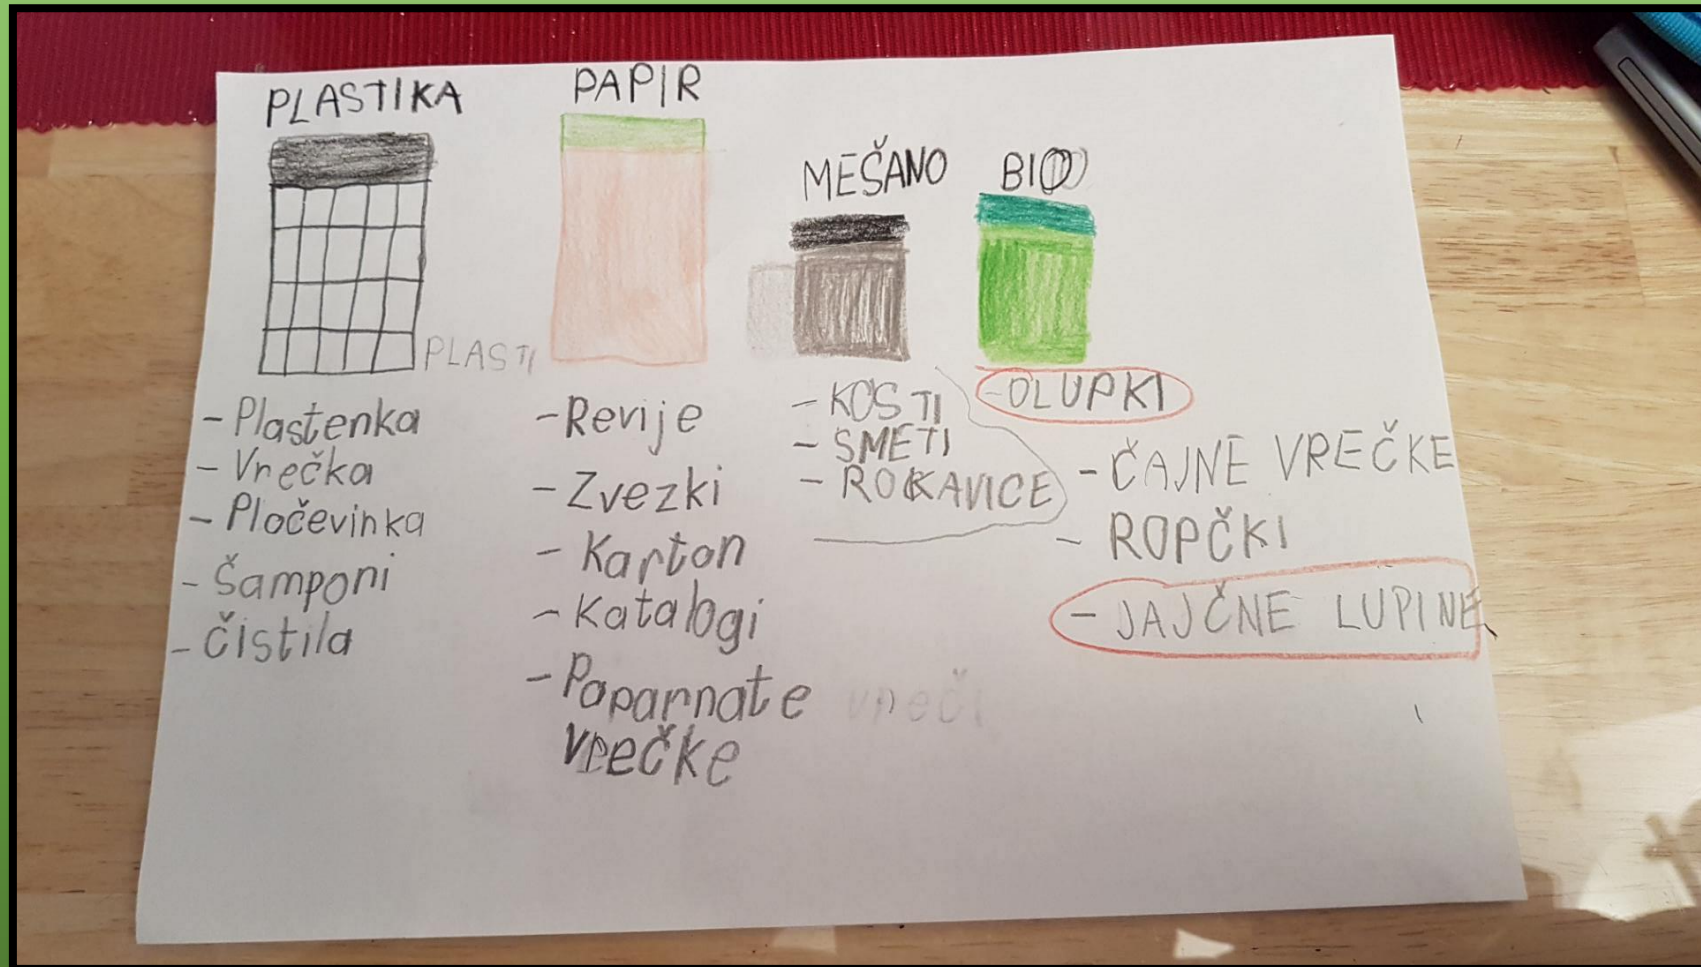 PLASTIKA
PAPIR
MEŠANO
BIO
PLASTI
- Plastenka
- Vrečka
- Pločevinka
- Šamponi
- Čistila
- Revije
- Zvezki
- Karton
- Katalogi
- Paparnate
vrečke
- KOSTI
- SMETI
- ROKAVICE
- OLUPKI
- ČAJNE VREČKE
- ROPČKI
- JAJČNE LUPINE